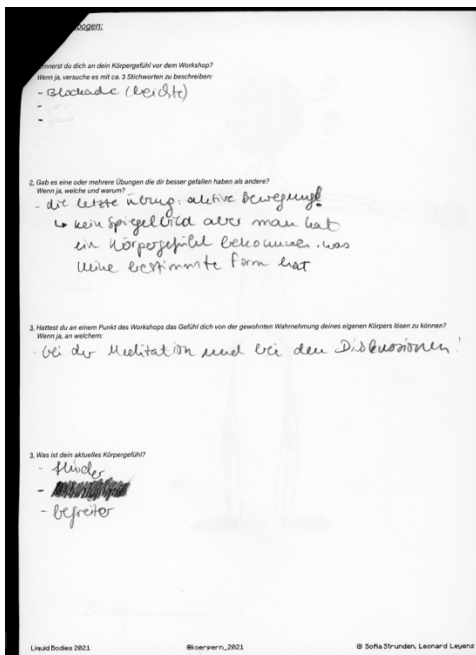 bogen:
innerst du dich an dein Körpergefühl vor dem Workshop?
Wenn ja, versuche es mit ca. 3 Stichworten zu beschreiben:
- Blockade (leichte)
-
-
2, Gab es eine oder mehrere Übungen die dir besser gefallen haben als andere?
Wenn ja, welche und warum?
- die letzte Übung: aktive Bewegung!
↳ kein Spiegelbild aber man hat
ein Körpergefühl bekommen, was
keine bestimmte Form hat
3, Hattest du an einem Punkt des Workshops das Gefühl dich von der gewohnten Wahrnehmung deines eigenen Körpers lösen zu können?
Wenn ja, an welchem:
- bei der Meditation und bei den Diskussionen!
3, Was ist dein aktuelles Körpergefühl?
-
-
- befreiter
Liquid Bodies 2021 @koerpern_2021 © Sofia Strunden, Leonard Leyens